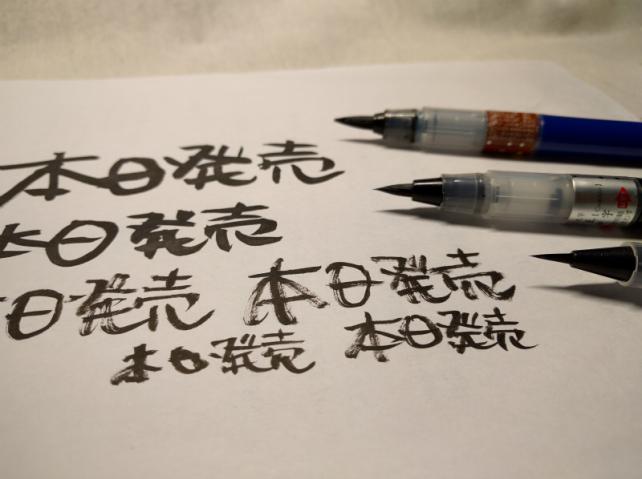 本日発売
本日発売
本日発売 本日発売
本日発売 本日発売